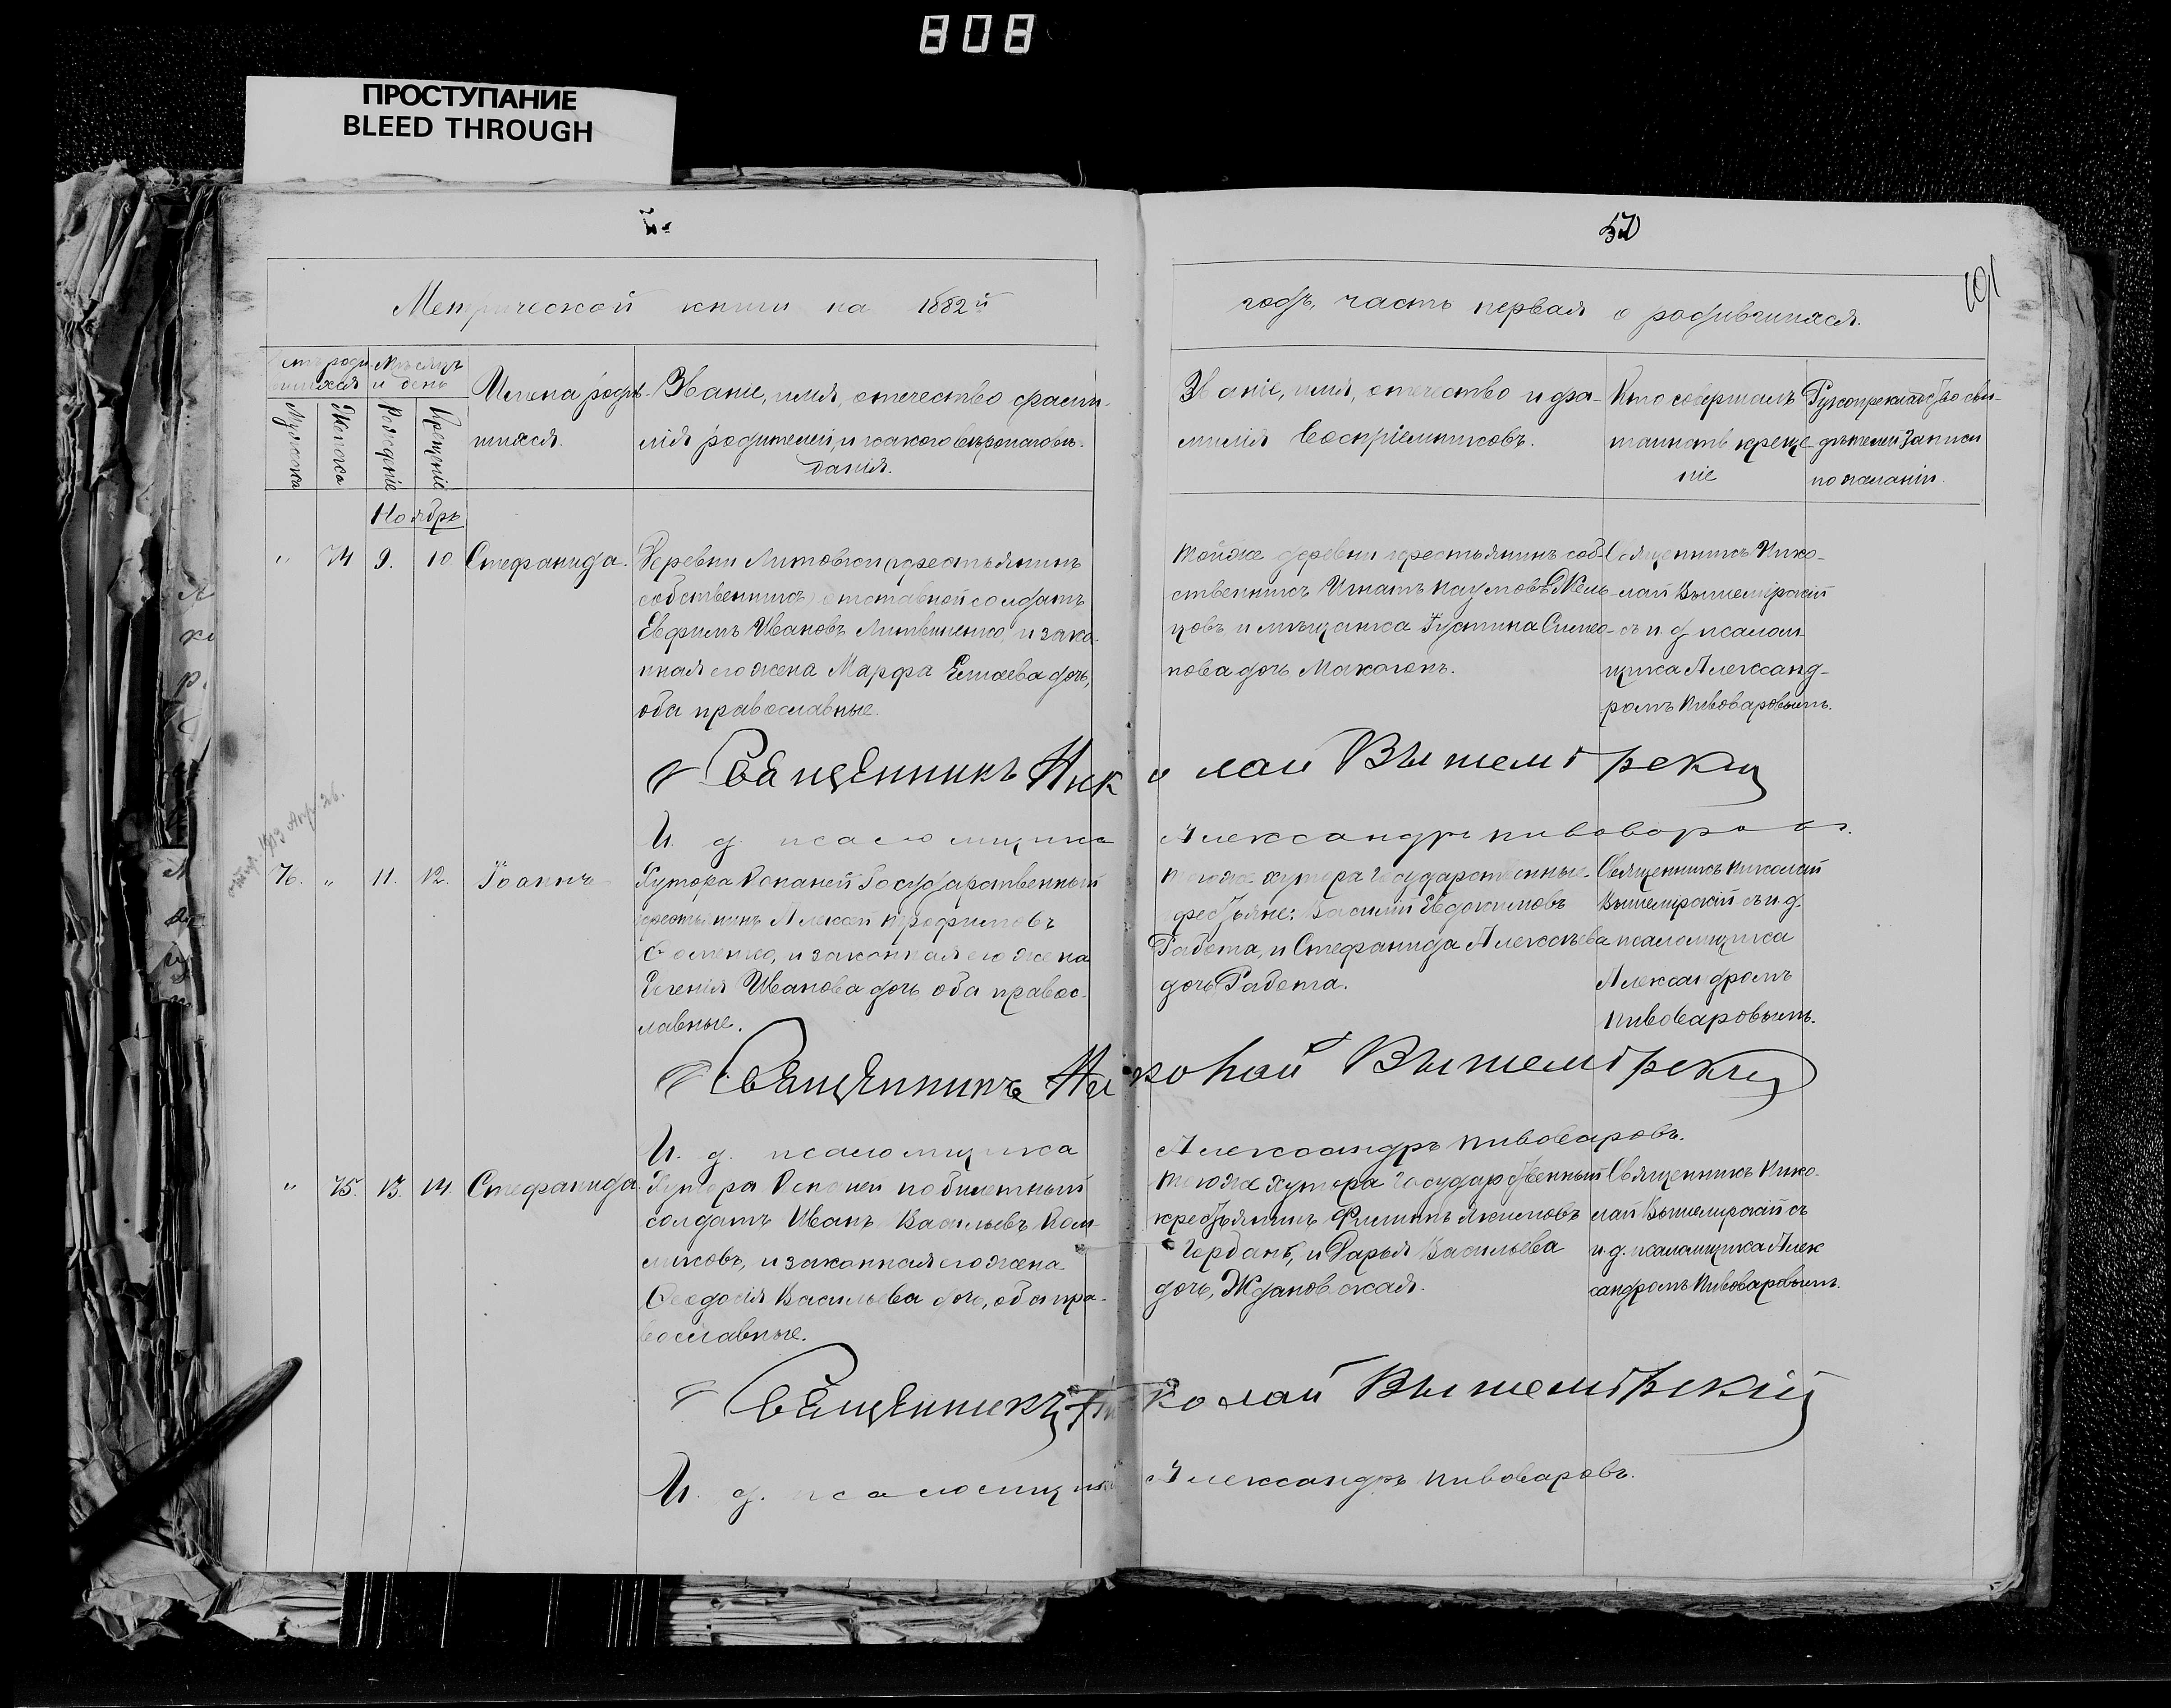 808
ПРОСТУПАНИЕ
BLEED THROUGH
101
Метрической книги на 1882й
годъ, часть первая о родившихся.
Мѣсяцъ
и день
Мужска
Женска
Рожденіе
Крещеніе
Имена родив-
шихся.
Званіе, имя, отечество фами-
лія родителей, и какого вѣроисповѣ-
данія.
Званіе, имя, отечество и фа-
милія воспріемниковъ.
Кто совершалъ
таинство креще
ніе
Рукоприкладство сви-
дѣтелей записи
по желанію.
Ноябрь
" 74 9. 10 Стефанида.
Деревни Литовки крестьянинъ
собственникъ отставной солдатъ
Евфимъ Ивановъ Литвиненко и зако-
нная его жена Марфа дочь,
оба православные.
тойже деревни крестьянинъ соб-
ственникъ Игнатъ Наумовъ
цовъ, и мѣщанка Іустина Симео-
нова дочь Макогонъ.
Священникъ Нико-
лай Вышемірскій
съ и. д. псалом
щика Александ-
ромъ Пивоваровымъ.
Священникъ Николай Вышемірскій
И. д. псаломщика Александръ Пивоваровъ.
1903 Апр. 26.
76. " 11. 12. Іоаннъ
Хутора Копаней Государственный
крестьянинъ Алексѣй Трофимовъ
и законная его жена
Евгенія Иванова дочь оба правос-
лавные.
тогоже хутора Государственные
крестьяне: Василій Евдокимовъ
Работа, и Стефанида Алексѣева
дочь Работа.
Священникъ Николай
Вышемірскій съ и. д.
псаломщика
Александромъ
Пивоваровымъ.
Священникъ Николай Вышемірскій
И. д. псаломщика Александръ Пивоваровъ.
" 75. 13. 14. Стефанида
Хутора Копаней побилетный
солдатъ Иванъ Васильевъ
и законная его жена
Ѳеодосія Васильева дочь, оба пра-
вославные.
тогоже хутора Государственный
крестьянинъ Филиппъ Акимовъ
Горбань, и Дарья Васильева
дочь, Ждановская.
Священникъ Нико-
лай Вышемірскій съ
и. д. псаломщика Алек
сандромъ Пивоваровымъ.
Священникъ Николай Вышемірскій
И. д. псаломщика Александръ Пивоваровъ.